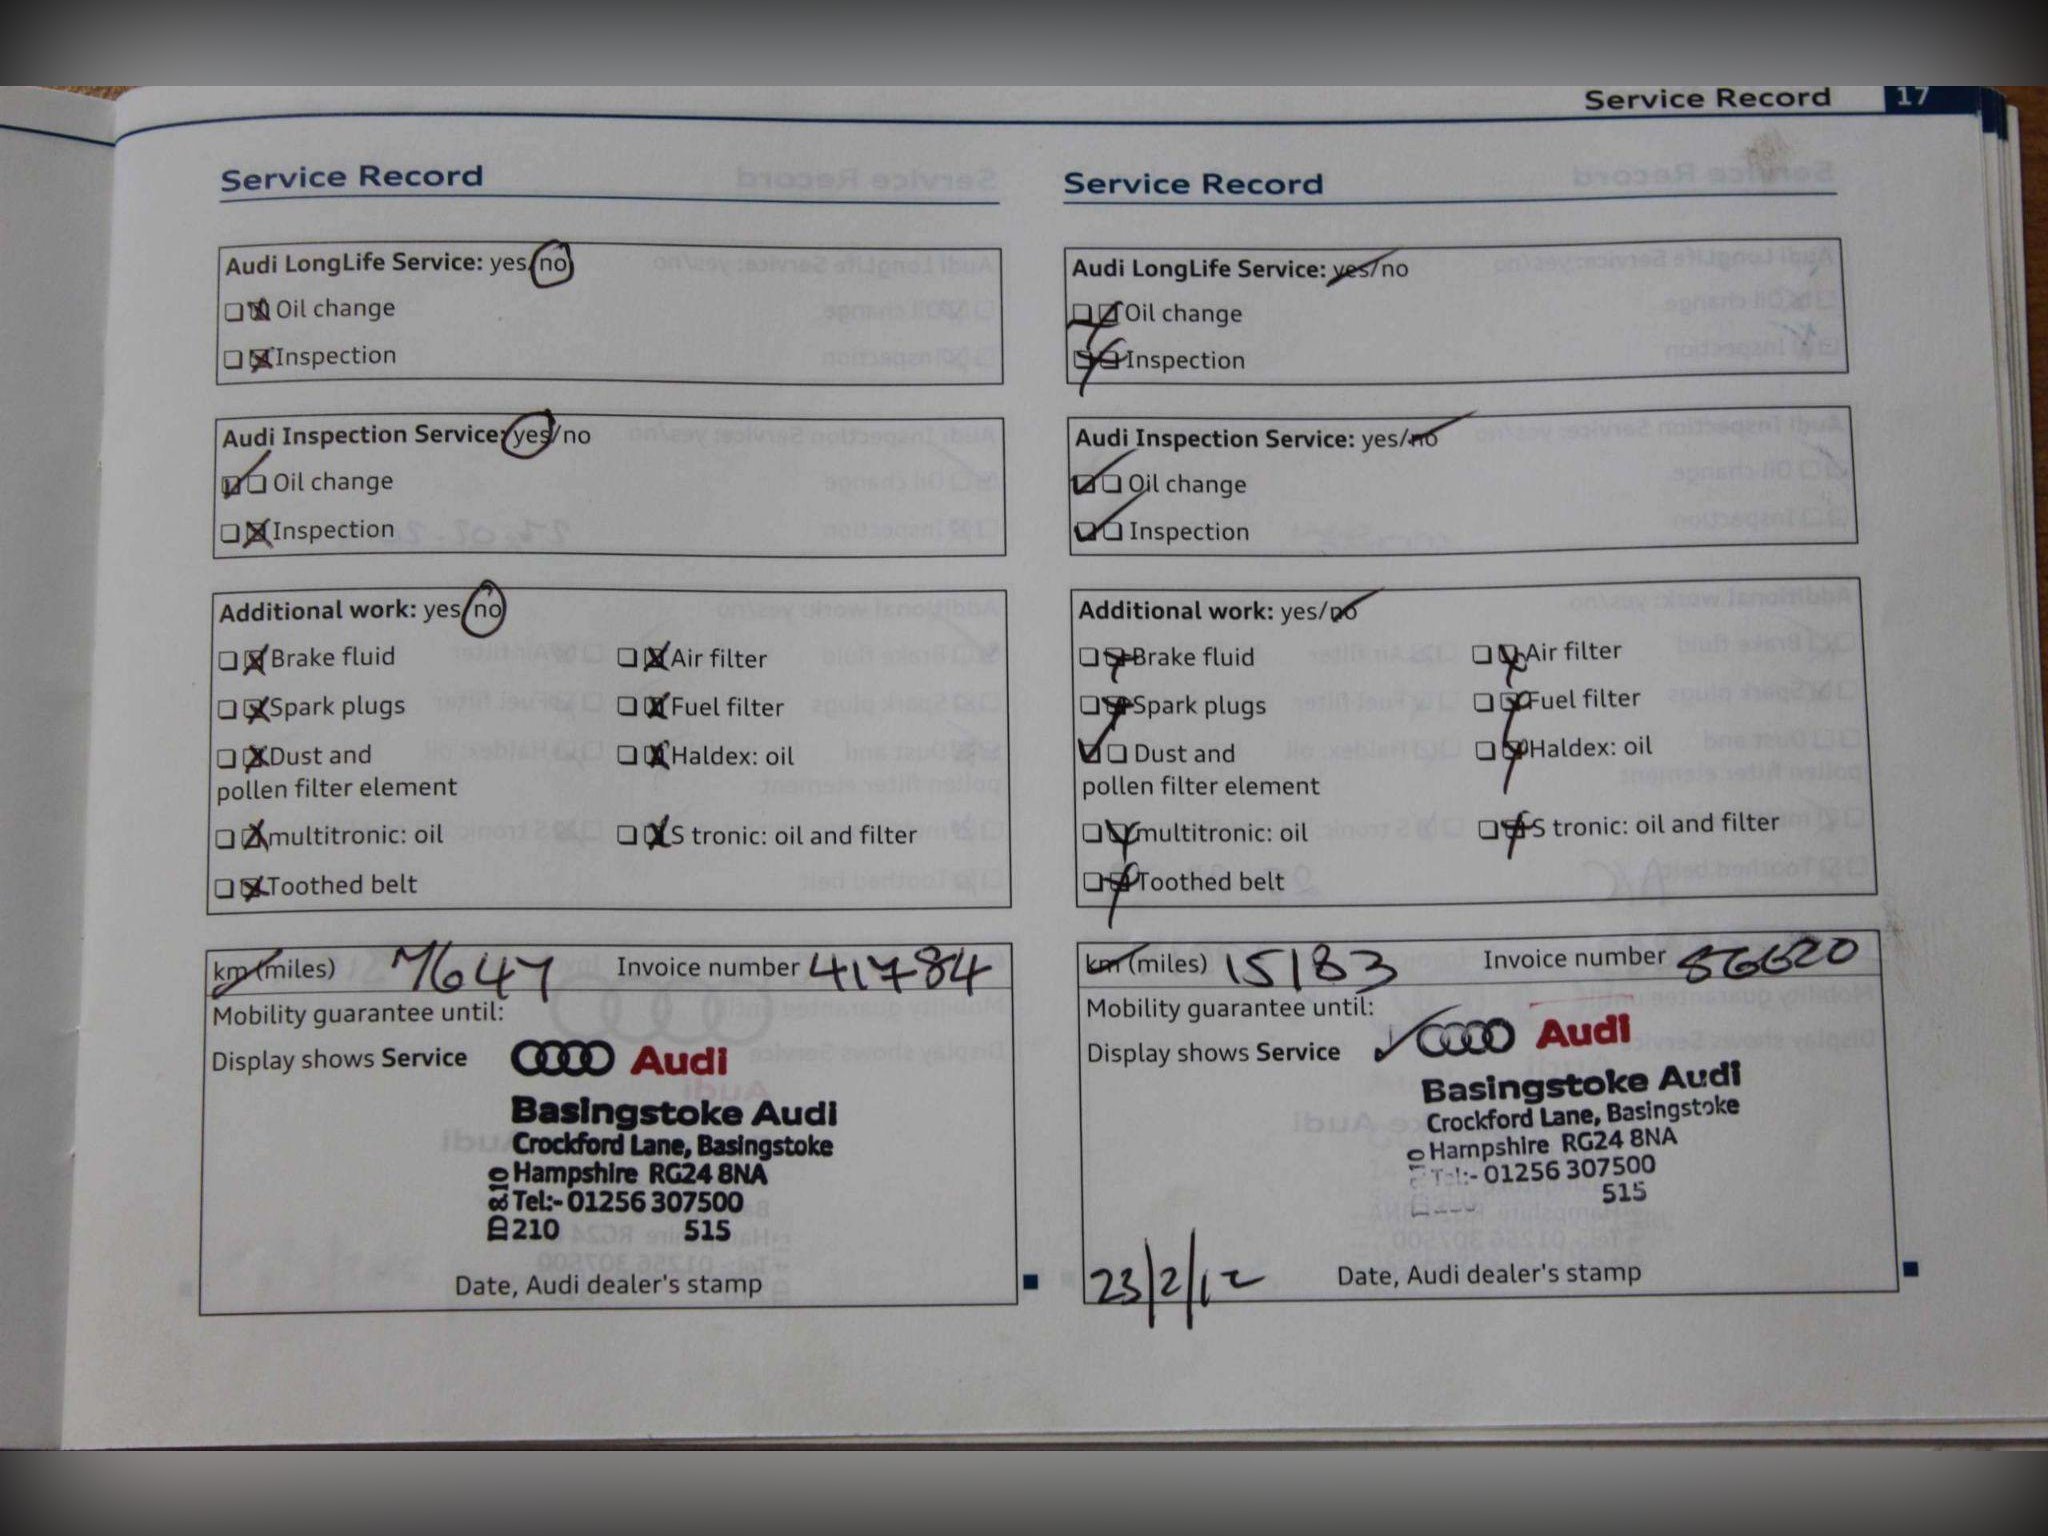 Service Record 17
Service Record
Audi LongLife Service: yes/no
Oil change
Inspection
Audi Inspection Service: yes/no
Oil change
Inspection
Additional work: yes/no
Brake fluid Air filter
Spark plugs Fuel filter
Dust and Haldex: oil
pollen filter element
multitronic: oil S tronic: oil and filter
Toothed belt
km (miles) 7647 Invoice number 41784
Mobility guarantee until:
Display shows Service
Audi
Basingstoke Audi
Crockford Lane, Basingstoke
Hampshire RG24 8NA
Tel:- 01256 307500
210 515
Date, Audi dealer's stamp
Service Record
Audi LongLife Service: yes/no
Oil change
Inspection
Audi Inspection Service: yes/no
Oil change
Inspection
Additional work: yes/no
Brake fluid Air filter
Spark plugs Fuel filter
Dust and Haldex: oil
pollen filter element
multitronic: oil S tronic: oil and filter
Toothed belt
km (miles) 15183 Invoice number 86620
Mobility guarantee until:
Display shows Service
Audi
Basingstoke Audi
Crockford Lane, Basingstoke
Hampshire RG24 8NA
Tel:- 01256 307500
515
23/2/12 Date, Audi dealer's stamp